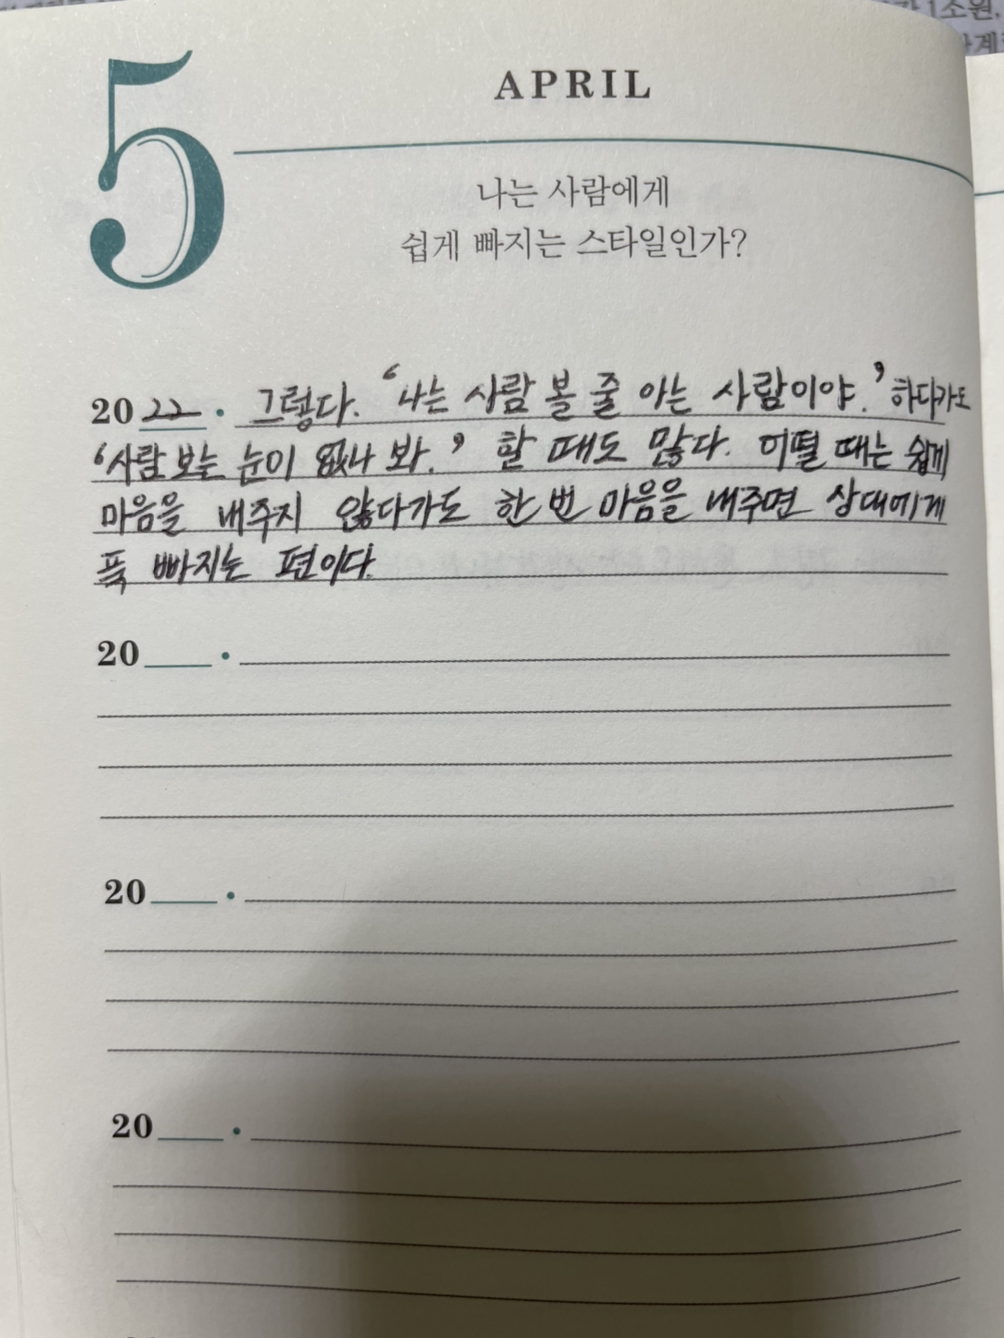 5
APRIL
나는 사람에게
쉽게 빠지는 스타일인가?
2022 · 그렇다. ‘나는 사람 볼 줄 아는 사람이야.’ 하다가도
‘사람 보는 눈이 없나 봐.’ 할 때도 많다. 어떨 때는 쉽게
마음을 내주지 않다가도 한 번 마음을 내주면 상대에게
푹 빠지는 편이다.
20___ ·
20___ ·
20___ ·